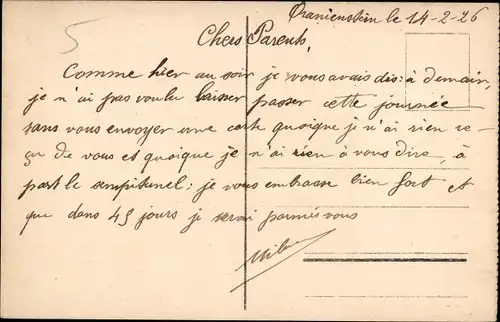 5
Oranienstein le 14-2-26
Chers Parents,
Comme hier au soir je vous avais dis: à demain,
je n'ai pas voulu laisser passer cette journée
sans vous envoyer une carte quoique je n'ai rien re-
çu de vous et quoique je n'ai rien à vous dire, à
part le sempiternel: je vous embrasse bien fort et
que dans 45 jours je serai parmis vous